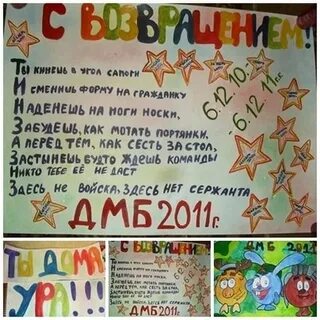 С ВОЗВРАЩЕНИЕМ!
6.12.10.-
6.12.11гг.
Ты кинешь в угол сапоги
И сменишь форму на гражданку
Наденешь на ноги носки,
Забудешь, как мотать портянки.
А перед тем, как сесть за стол,
Застынешь будто ждешь команды
Никто тебе её не даст
Здесь не войска, здесь нет сержанта.
ДМБ 2011г.
ТЫ ДОМА
УРА!!!
С ВОЗВРАЩЕНИЕМ!
ДМБ 2011г.
ДМБ 2011